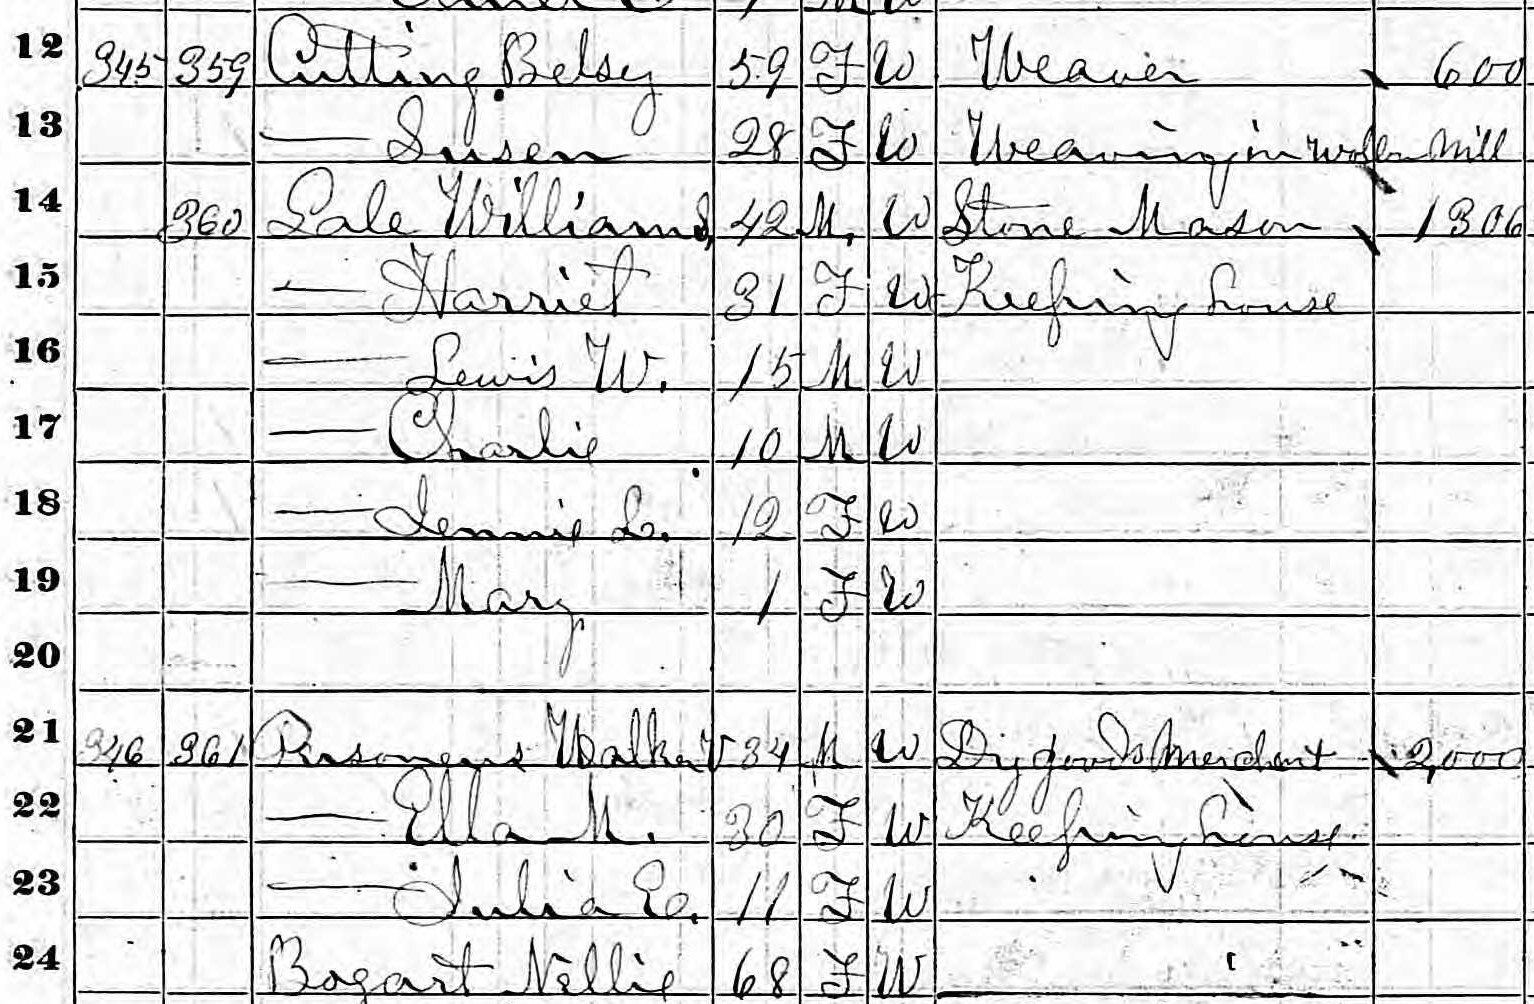 12 345 359 Cutting Betsey 59 F W Weaver 600
13 — Susen 28 F W Weaving in Wollen Mill
14 360 Gale William S, 42 M. W Stone Mason 1306
15 — Harriet 31 F W Keeping house
16 — Lewis W. 15 M W
17 — Charlie 10 M W
18 — Jennie L. 12 F W
19 — Mary 1 F W
20
21 346 361 34 M W Dry goods Merchant 2,000
22 — Ella M. 30 F W Keeping house
23 — Julia E. 11 F W
24 Bogart Nellie 68 F W